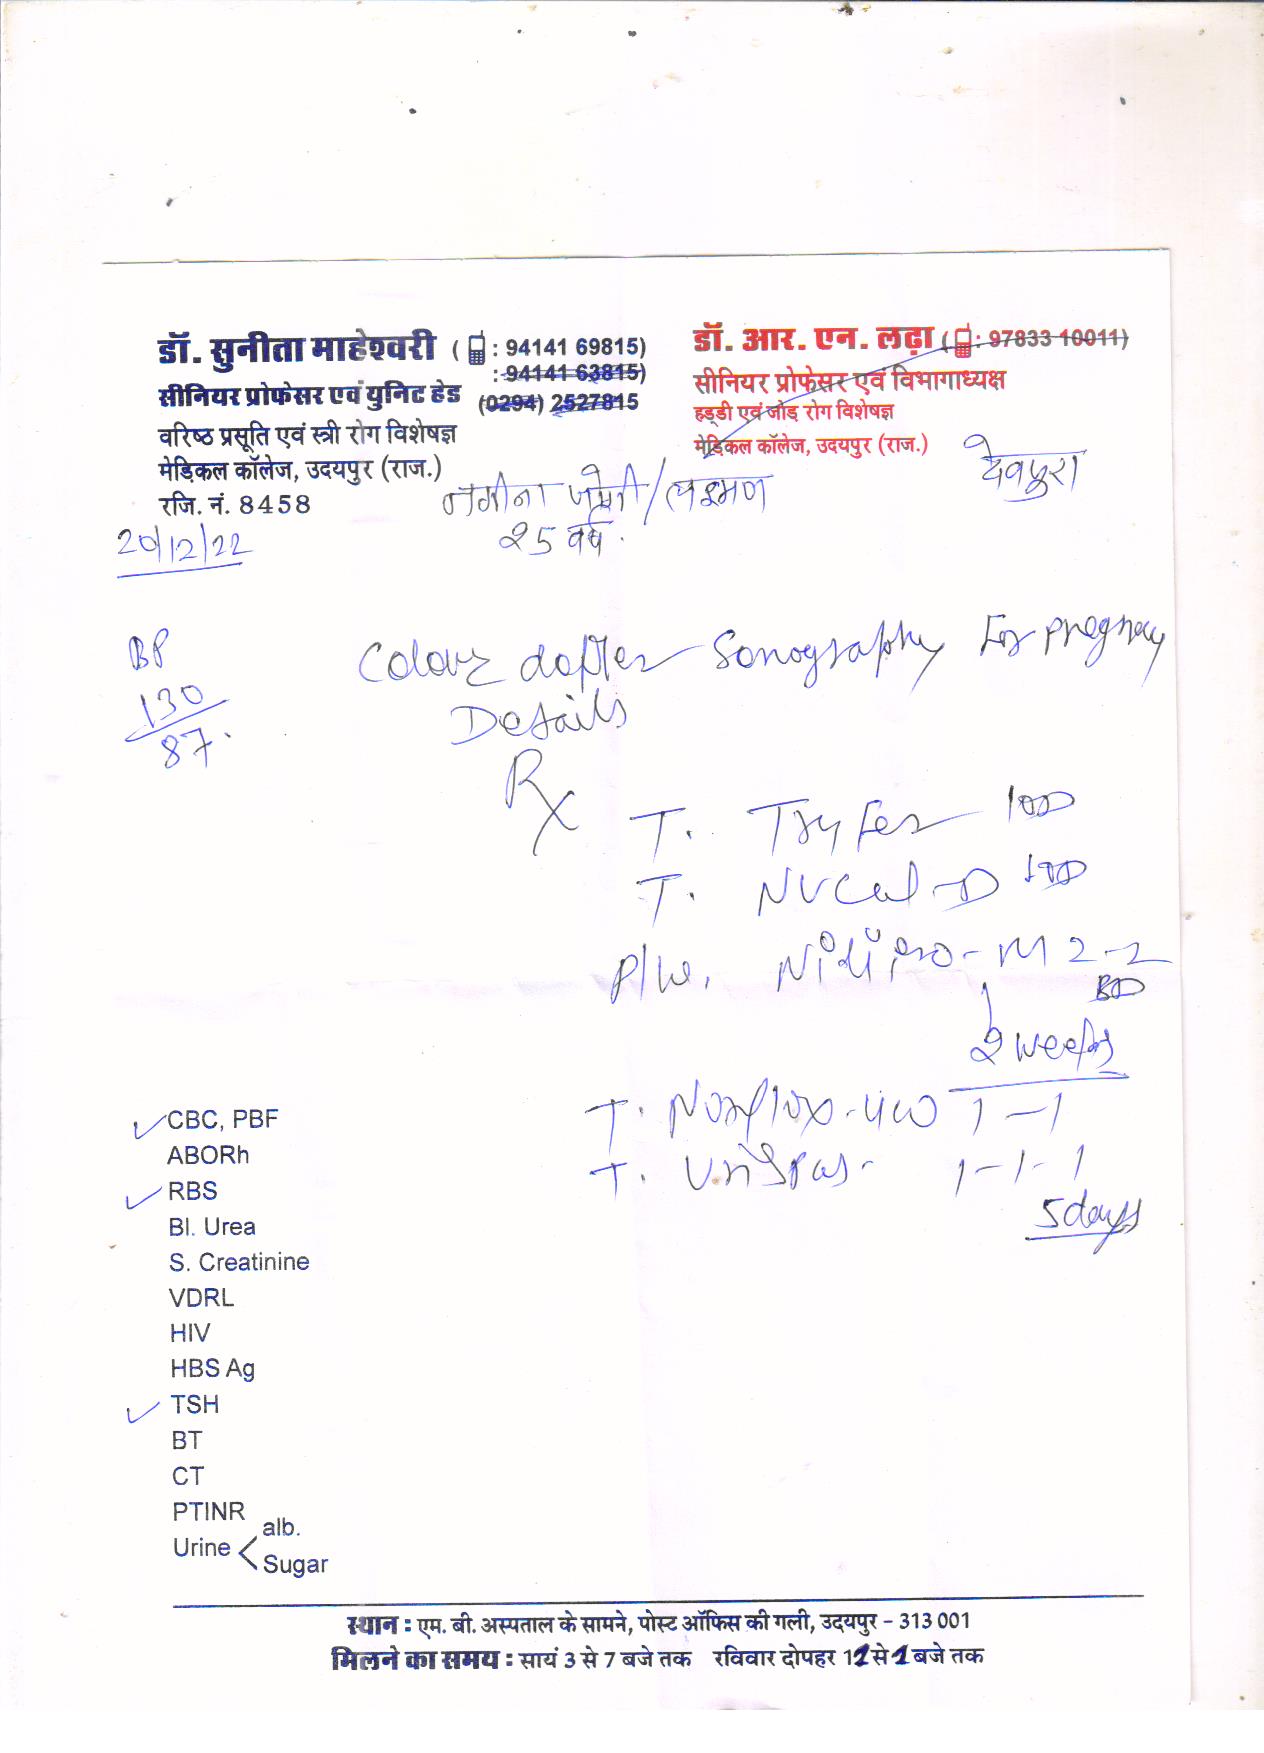 डॉ. सुनीता माहेश्वरी ( : 94141 69815)
: 94141 63815)
सीनियर प्रोफेसर एवं युनिट हेड (0294) 2527815
वरिष्ठ प्रसूति एवं स्त्री रोग विशेषज्ञ
मेडिकल कॉलेज, उदयपुर (राज.)
रजि. नं. 8458
डॉ. आर. एन. लढ़ा ( : 97833 10011)
सीनियर प्रोफेसर एवं विभागाध्यक्ष
हड्डी एवं जोड़ रोग विशेषज्ञ
मेडिकल कॉलेज, उदयपुर (राज.)
नगीना / लक्ष्मण
देवपुरा
25 वर्ष.
20/12/22
BP
130
87.
Colour dopler Sonography For pregnancy
Details
Rx
T. Tryfer 1OD
T. NVCal-D 1OD
P/w. -M 2-2
BD
2 weeks
T. Norflox-400 1-1
T. 1-1-1
5 days
CBC, PBF
ABORh
RBS
Bl. Urea
S. Creatinine
VDRL
HIV
HBS Ag
TSH
BT
CT
PTINR
Urine < alb.
Sugar
स्थान : एम. बी. अस्पताल के सामने, पोस्ट ऑफिस की गली, उदयपुर - 313 001
मिलने का समय : सायं 3 से 7 बजे तक रविवार दोपहर 11 से 1 बजे तक